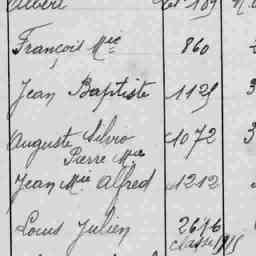 Albert
François Mie 860
Jean Baptiste 1129
Auguste Silvio 1072
Pierre Mie
Jean Mie Alfred 1212
Louis Julien 2616
classe 1915